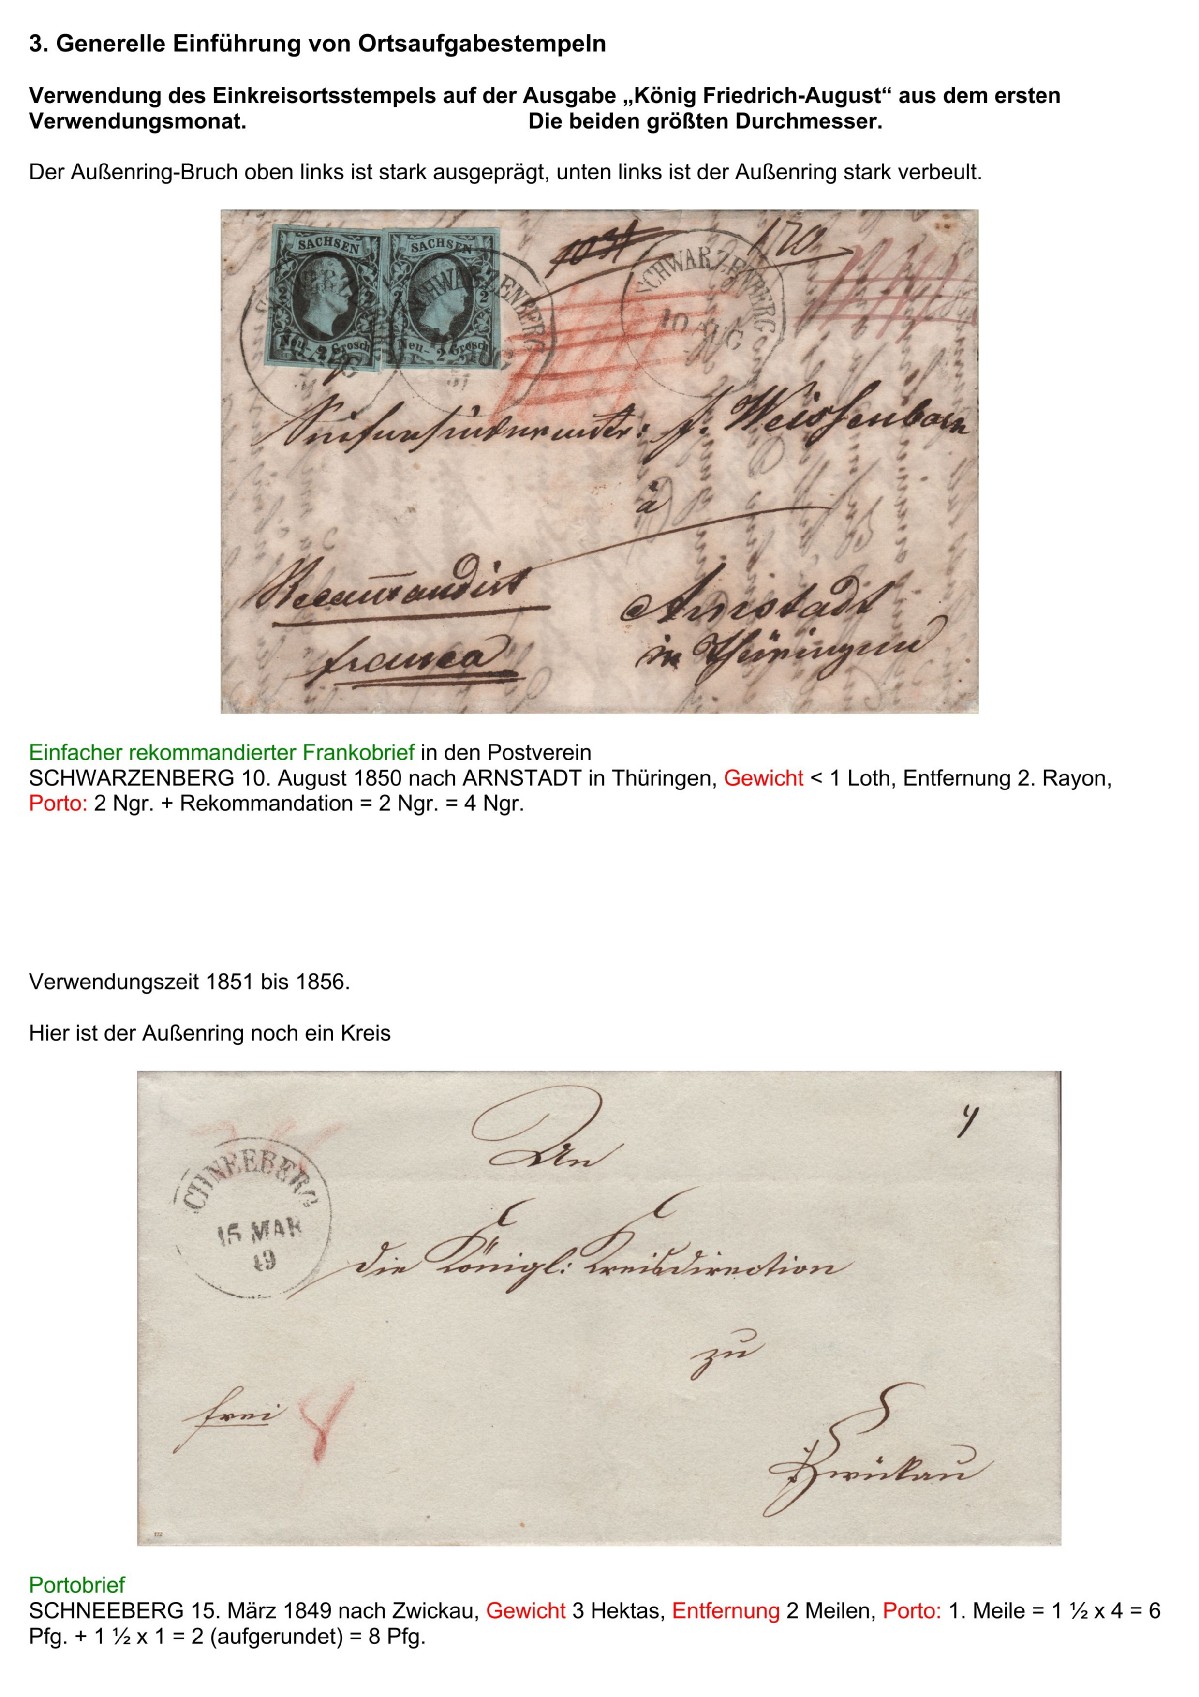 3. Generelle Einführung von Ortsaufgabestempeln
Verwendung des Einkreisortsstempels auf der Ausgabe „König Friedrich-August“ aus dem ersten
Verwendungsmonat. Die beiden größten Durchmesser.
Der Außenring-Bruch oben links ist stark ausgeprägt, unten links ist der Außenring stark verbeult.
SACHSEN
SACHSEN
Neu- 2 Grosch
Neu- 2 Grosch
SCHWARZENBERG
SCHWARZENBERG
10
Weissenborn
à
Recommandirt
franco
Arnstadt
in Thüringen
Einfacher rekommandierter Frankobrief in den Postverein
SCHWARZENBERG 10. August 1850 nach ARNSTADT in Thüringen, Gewicht < 1 Loth, Entfernung 2. Rayon,
Porto: 2 Ngr. + Rekommandation = 2 Ngr. = 4 Ngr.
Verwendungszeit 1851 bis 1856.
Hier ist der Außenring noch ein Kreis
SCHNEEBERG
15 MAR
49
An
die Königl: Kreisdirection
zu
Zwickau
frei
8
Portobrief
SCHNEEBERG 15. März 1849 nach Zwickau, Gewicht 3 Hektas, Entfernung 2 Meilen, Porto: 1. Meile = 1 ½ x 4 = 6
Pfg. + 1 ½ x 1 = 2 (aufgerundet) = 8 Pfg.